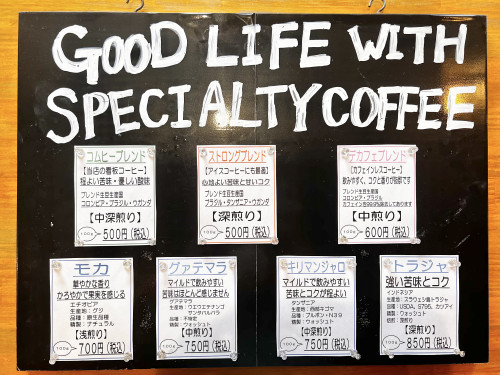 GOOD LIFE WITH
SPECIALTY COFFEE
コムヒーブレンド
【当店の看板コーヒー】
程よい苦味・優しい酸味
ブレンド生豆生産国
コロンビア・ブラジル・ウガンダ
【中深煎り】
100g 500円(税込)
ストロングブレンド
【アイスコーヒーにも最適】
心地よい苦味と甘いコク
ブレンド生豆生産国
ブラジル・タンザニア・ウガンダ
【深煎り】
100g 500円(税込)
デカフェブレンド
【カフェインレスコーヒー】
飲みやすく、コクと香りが独特です
ブレンド生豆生産国
コロンビア・ブラジル
カフェイン分99.9%除去しております
【中煎り】
100g 600円(税込)
モカ
華やかな香り
かろやかで果実を感じる
エチオピア
生産地：グジ
品種：原生品種
精製：ナチュラル
【浅煎り】
100g 700円(税込)
グァテマラ
マイルドで飲みやすい
苦味はほとんど感じません
グァテマラ
生産地：ウエウエテナンゴ
サンタバルバラ
品種：不限定
精製：ウォッシュト
【中煎り】
100g 750円(税込)
キリマンジャロ
マイルドで飲みやすい
苦味とコクが程よい
タンザニア
生産地：西部キゴマ
品種：ブルボン・N39
精製：ウォッシュト
【中煎り】
100g 750円(税込)
トラジャ
強い苦味とコク
インドネシア
生産地：スラウェシ島トラジャ
品種：USDA、S795、カツアイ
精製：ウォッシュト
焙煎：深煎り
【深煎り】
100g 850円(税込)